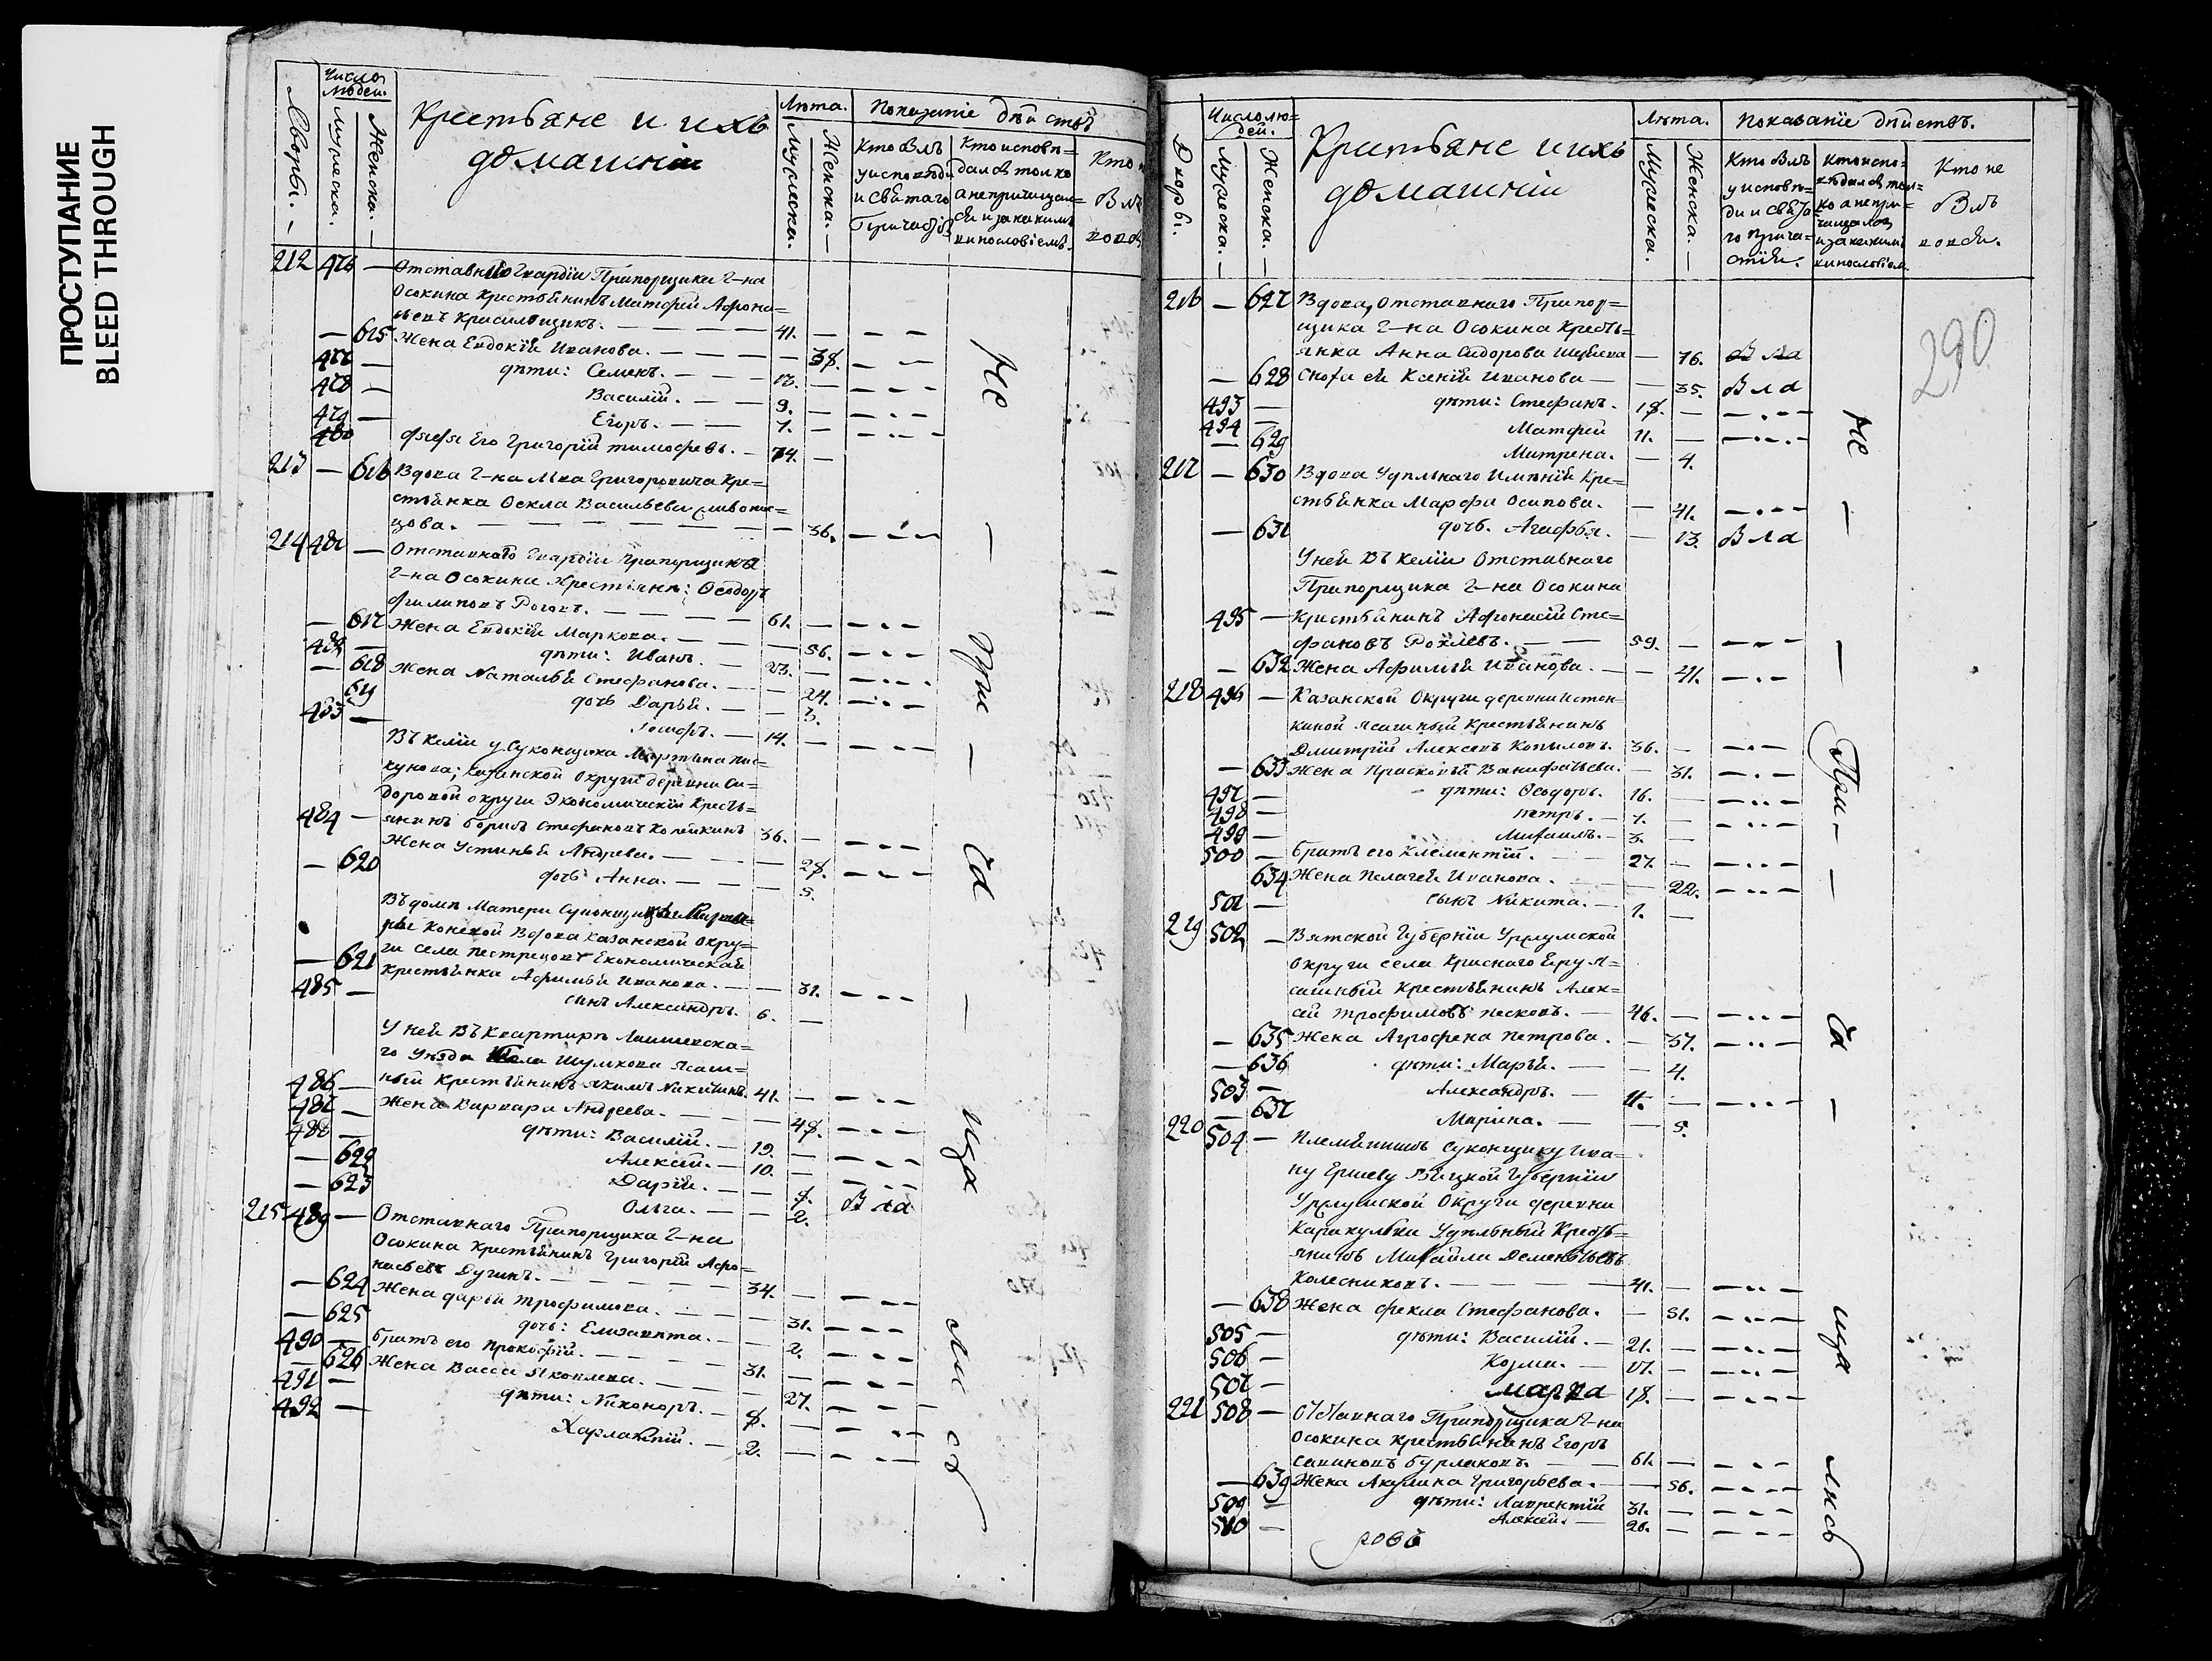 ПРОСТУПАНИЕ
BLEED THROUGH
Дворы.
Число
людей.
Мужеска.
Женска.
Крестьяне и ихъ
домашнiи
Лѣта.
Мужеска.
Женска.
Показанiе дѣйствъ
Кто былъ
у исповѣди
и святаго
Причастiя
Кто исповѣ=
дался толко
а непричащал=
ся и за какимъ
винословiемъ.
Кто н
был
212 476 — Отставнаго Гвардiи Прапорщика Г-на
Осокина Крестьянинъ Матфей Афона=
сьевъ Красильщикъ. — 41.
— 615 Жена Евдокiя Иванова. — 38.
477 — дѣти: Семенъ. — 12.
478 — Василiй. — 9.
479 — Егоръ. — 7.
480 дядя Его Григорiй тимофеевъ. — 74.
213 — 616 Вдова Г-на Льва Григоровича Кре=
стьянка Фекла Васильева
цова. — 36.
214 481 — Отставнаго Гвардiи Прапорщика
Г-на Осокина Крестьянинъ: Феодоръ
Филиповъ Роговъ. — 61.
— 617 Жена Евдокiя Маркова. — 56.
482 — дѣти: Иванъ. — 23.
— 618 Жена Наталья Стефанова. — 24.
619 дочь Дарья. — 3.
483 — Iосифъ. — 14.
Въ келiи у Суконщика Мартына Пис=
кунова; Казанской Округи деревни Си=
доровой округи Экономическiй Кресть=
484 — янинъ Борисъ Стефановъ Копейкинъ 36.
Жена Устинья Андреева. — 28.
— 620 дочь Анна. — 5.
Въ домѣ Матери Суконщицы
621 ги села Пестрецовъ Економическая
Крестьянка Афимья Иванова. — 31.
485 — сынъ Александръ. 6.
У ней Въ Квартирѣ Лаишевска=
го Уѣзда Села Шумкова Ясаш=
486 — ный Крестьянинъ Якимъ Никитинъ. 41.
487 — Жена Варвара Андреева. — 48.
488 — дѣти: Василiй. — 19.
— 622 Алексѣй. — 10.
— 623 Дарiя. — 8.
Ольга. — 2. Была
215 489 — Отставнаго Прапорщика Г-на
Осокина Крестьянинъ Григорiй Афо=
насьевъ Дугинъ. — 34.
— 624 Жена дарья Трофимова. — 31.
— 625 дочь: Елизавета. — 2.
490 — Братъ его Прокофiй. — 31.
— 626 Жена Васса Яковлева. — 27.
491 — дѣти: Никоноръ. — 8.
492 — Харлампiй. — 2.
Не — при — ча — ща — ли сь
Дворы.
Число лю=
дей.
Мужеска.
Женска.
Крестьяне и ихъ
домашнiи
Лѣта.
Мужеска.
Женска.
Показанiе дѣйствъ.
Кто былъ
у исповѣ=
ди и свята=
го прича=
стiя.
Кто испо=
вѣдался тол=
ко а непри=
чащался
и за какимъ
винословiем
Кто не
былъ
вовся.
290
216 — 627 Вдова, Отставнаго Прапор=
щика Г-на Осокина Кресть=
янка Анна Сидорова — 76. Была
— 628 Сноха ей Ксенiя Иванова — 35. Была
493 — дѣти: Стефанъ. 18.
494 Матфей 11.
— 629 Митрена. — 4.
217 — 630 Вдова Удѣльнаго Имѣнiя Кре=
стьянка Марфа Осипова. — 41.
— 631 дочь. Агафья. — 13. Была
У ней въ келiи Отставнаго
Прапорщика Г-на Осокина
495 — Крестьянинъ Афонасiй Сте=
фановъ 59.
— 632 Жена Афимья Иванова. — 41.
218 496 — Казанской Округи деревни
киной ясашный Крестьянинъ
Дмитрiй Алексеевъ Копыловъ. 36.
— 633 Жена Прасковья Ванифатьева. 31.
497 — дѣти: Феодоръ. 16.
498 — петръ. — 7.
499 — Михаилъ. — 3.
500 — Братъ его Клементiй. 27.
634 Жена Пелагея Иванова. 22.
501 — сынъ Никита. — 1.
219 502 — Вятской Губернiи Уржумской
Округи села Краснаго Еру Я=
сашный Крестьянинъ Алек=
сѣй Трофимовъ песковъ. — 46.
— 635 Жена Агрофена Петрова. — 37.
— 636 дѣти: Марья. — 4.
503 — Александръ. — 11.
— 637 Марiна. — 5.
220 504 — Племянникъ Суконщику Ива=
ну Ершову Вятской Губернiи
Уржумской Округи деревни
Каракульки Удѣльный Кресть=
янинъ Михайла Дементьевъ
Колесниковъ. — 41.
— 638 Жена фекла Стефанова. — 51.
505 — дѣти: Василiй. — 21.
506 — Козма. — 17.
507 — марка 18.
221 508 — Отставнаго Прапорщика Г-на
Осокина Крестьянинъ Егоръ
Савиновъ Бурлаковъ. — 61.
— 639 Жена Акулина Григорьева. — 56.
509 — дѣти: Лаврентiй 31.
510 — Алексей. — 26.
Не — — При — ча — ща лись